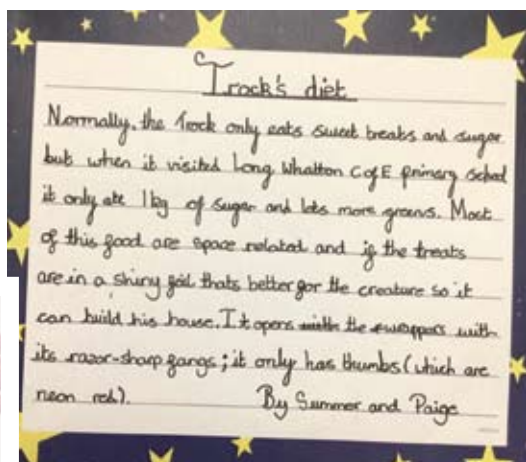 Trock's diet
Normally, the Trock only eats sweet treats and sugar
but when it visited Long Whatton CofE primary school
it only ate 1kg of sugar and lots more greens. Most
of this food are space related and if the treats
are in a shiny foil thats better for the creature so it
can build his house. It opens with the wrappers with
its razor-sharp fangs; it only has thumbs (which are
neon red).
By Summer and Paige